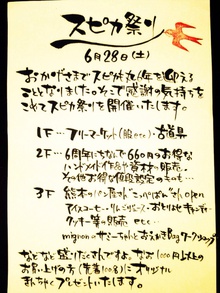 スピカ祭り
6月28日(土)
おかげさまでスピカ九年を迎える
ことになりました。そこで感謝の気持ちを
こめてスピカ祭りを開催いたします。
1F… フリーマーケット(服etc)・古道具
2F… 6周年にちなんで660円のお得な
ハンドメイド作品&資材の販売。
その他お得な値段設定のもの…
3F 熊本のパン屋さん"こっぺぱん"さん OPEN
アイスコーヒー
クッキー等の販売 etc…
mignonのサニーちゃんとおえかきBagワークショップ
などなど盛りだくさんですよ。なお1000円以上の
お買い上げの方(先着100名)にオリジナル
きんちゃくプレゼントいたします。